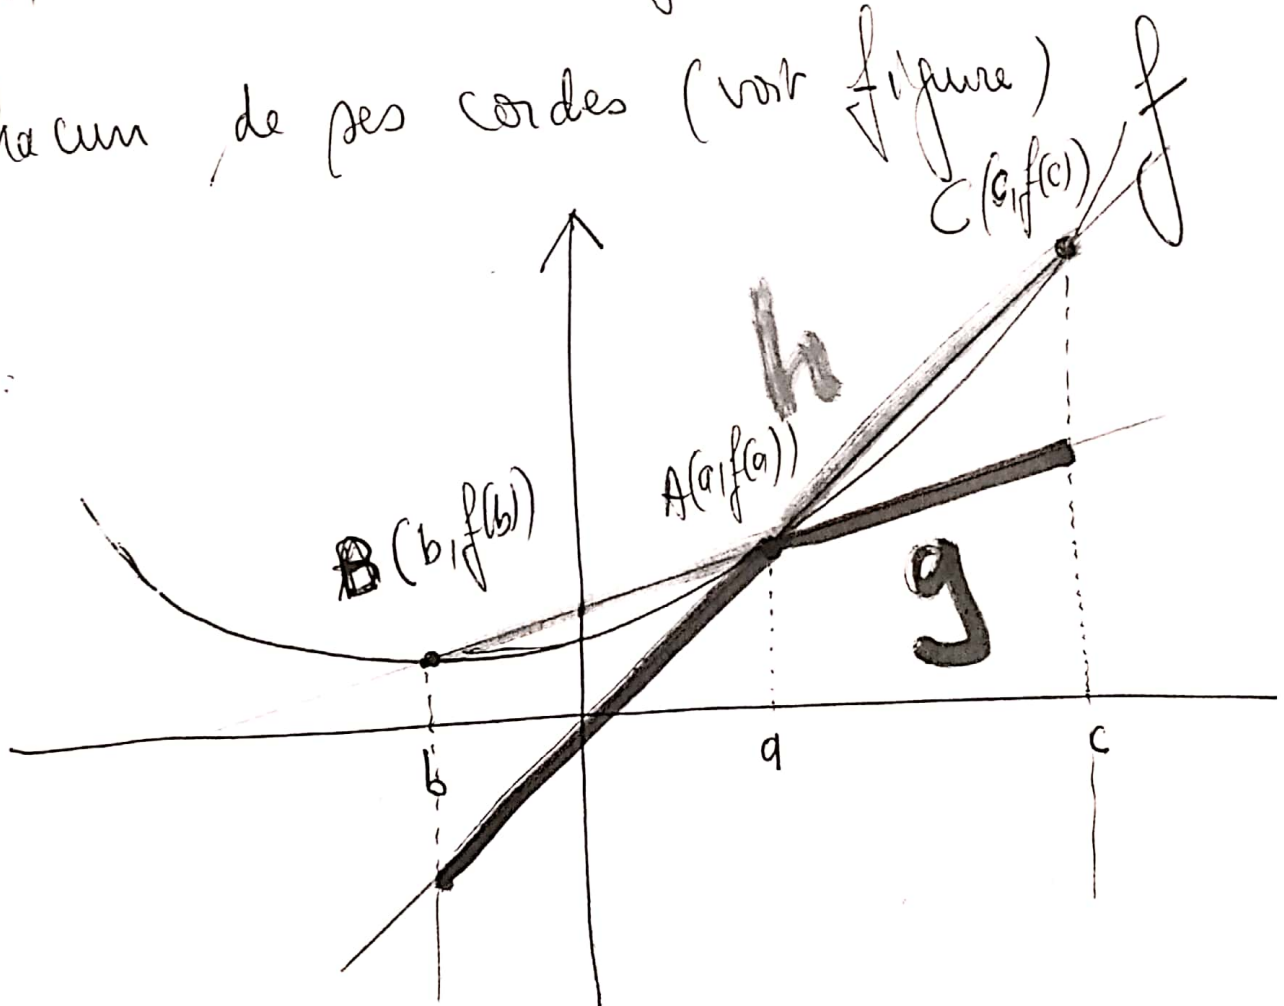 hacun de ses cordes (voit figure) f
C(c,f(c))
h
A(a,f(a))
B(b,f(b))
g
b a c